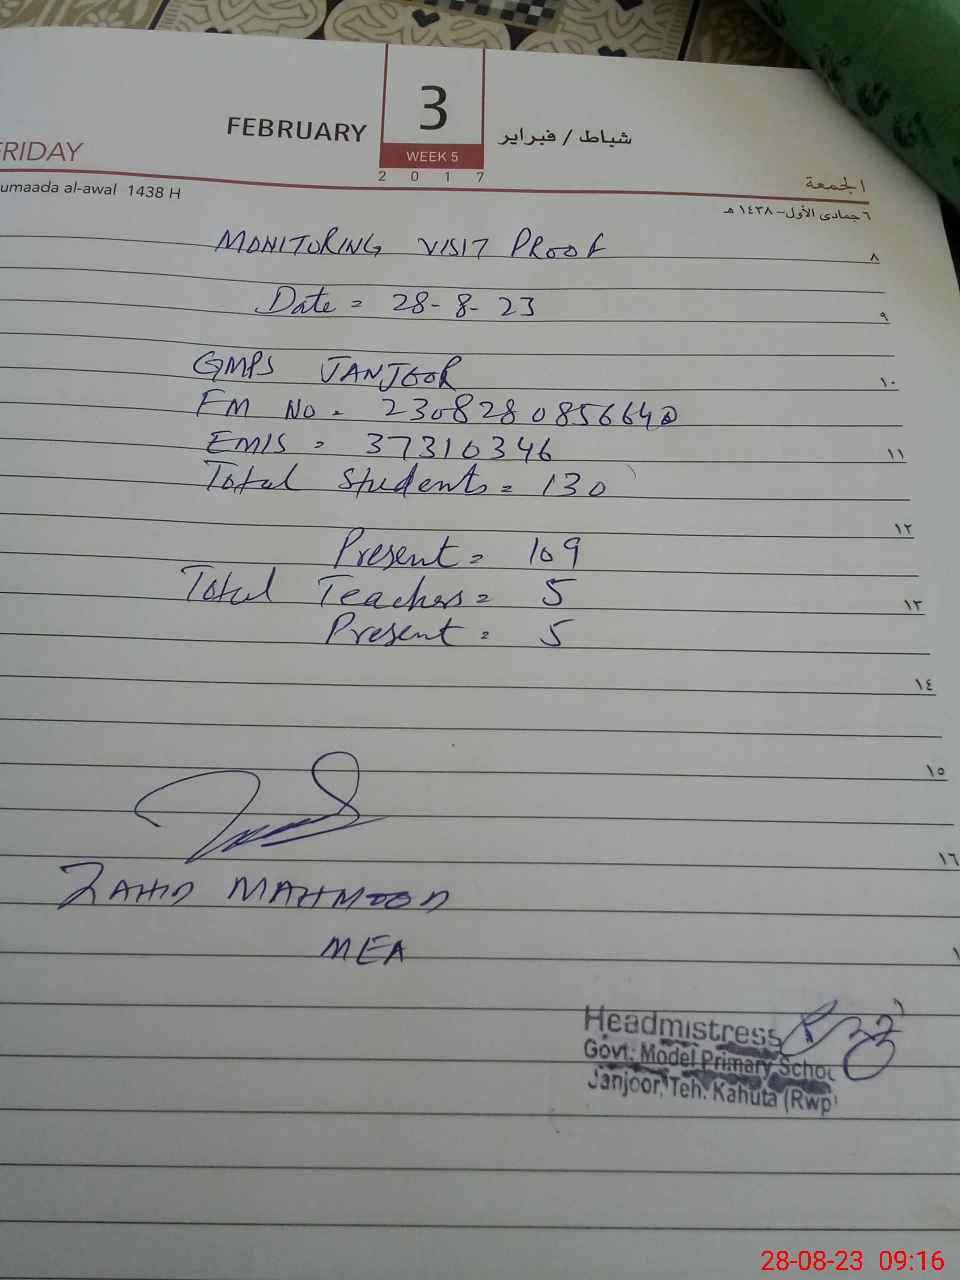 FEBRUARY 3 شباط / فبراير
WEEK 5
2 0 1 7
FRIDAY الجمعة
umaada al-awal 1438 H ٦ جمادى الأول - ١٤٣٨ هـ
MONITORING VISIT PROOF ٨
Date = 28-8-23 ٩
GMPS JANJOOR ١٠
FM No = 2308280856640
EMIS = 37310346 ١١
Total students = 130
١٢
Present = 109
Total Teachers = 5 ١٣
Present = 5
١٤
١٥
١٦
ZAHID MAHMOOD
MEA
Headmistress
Govt: Model Primary Schoo
Janjoor, Teh. Kahuta (Rwp)
28-08-23 09:16